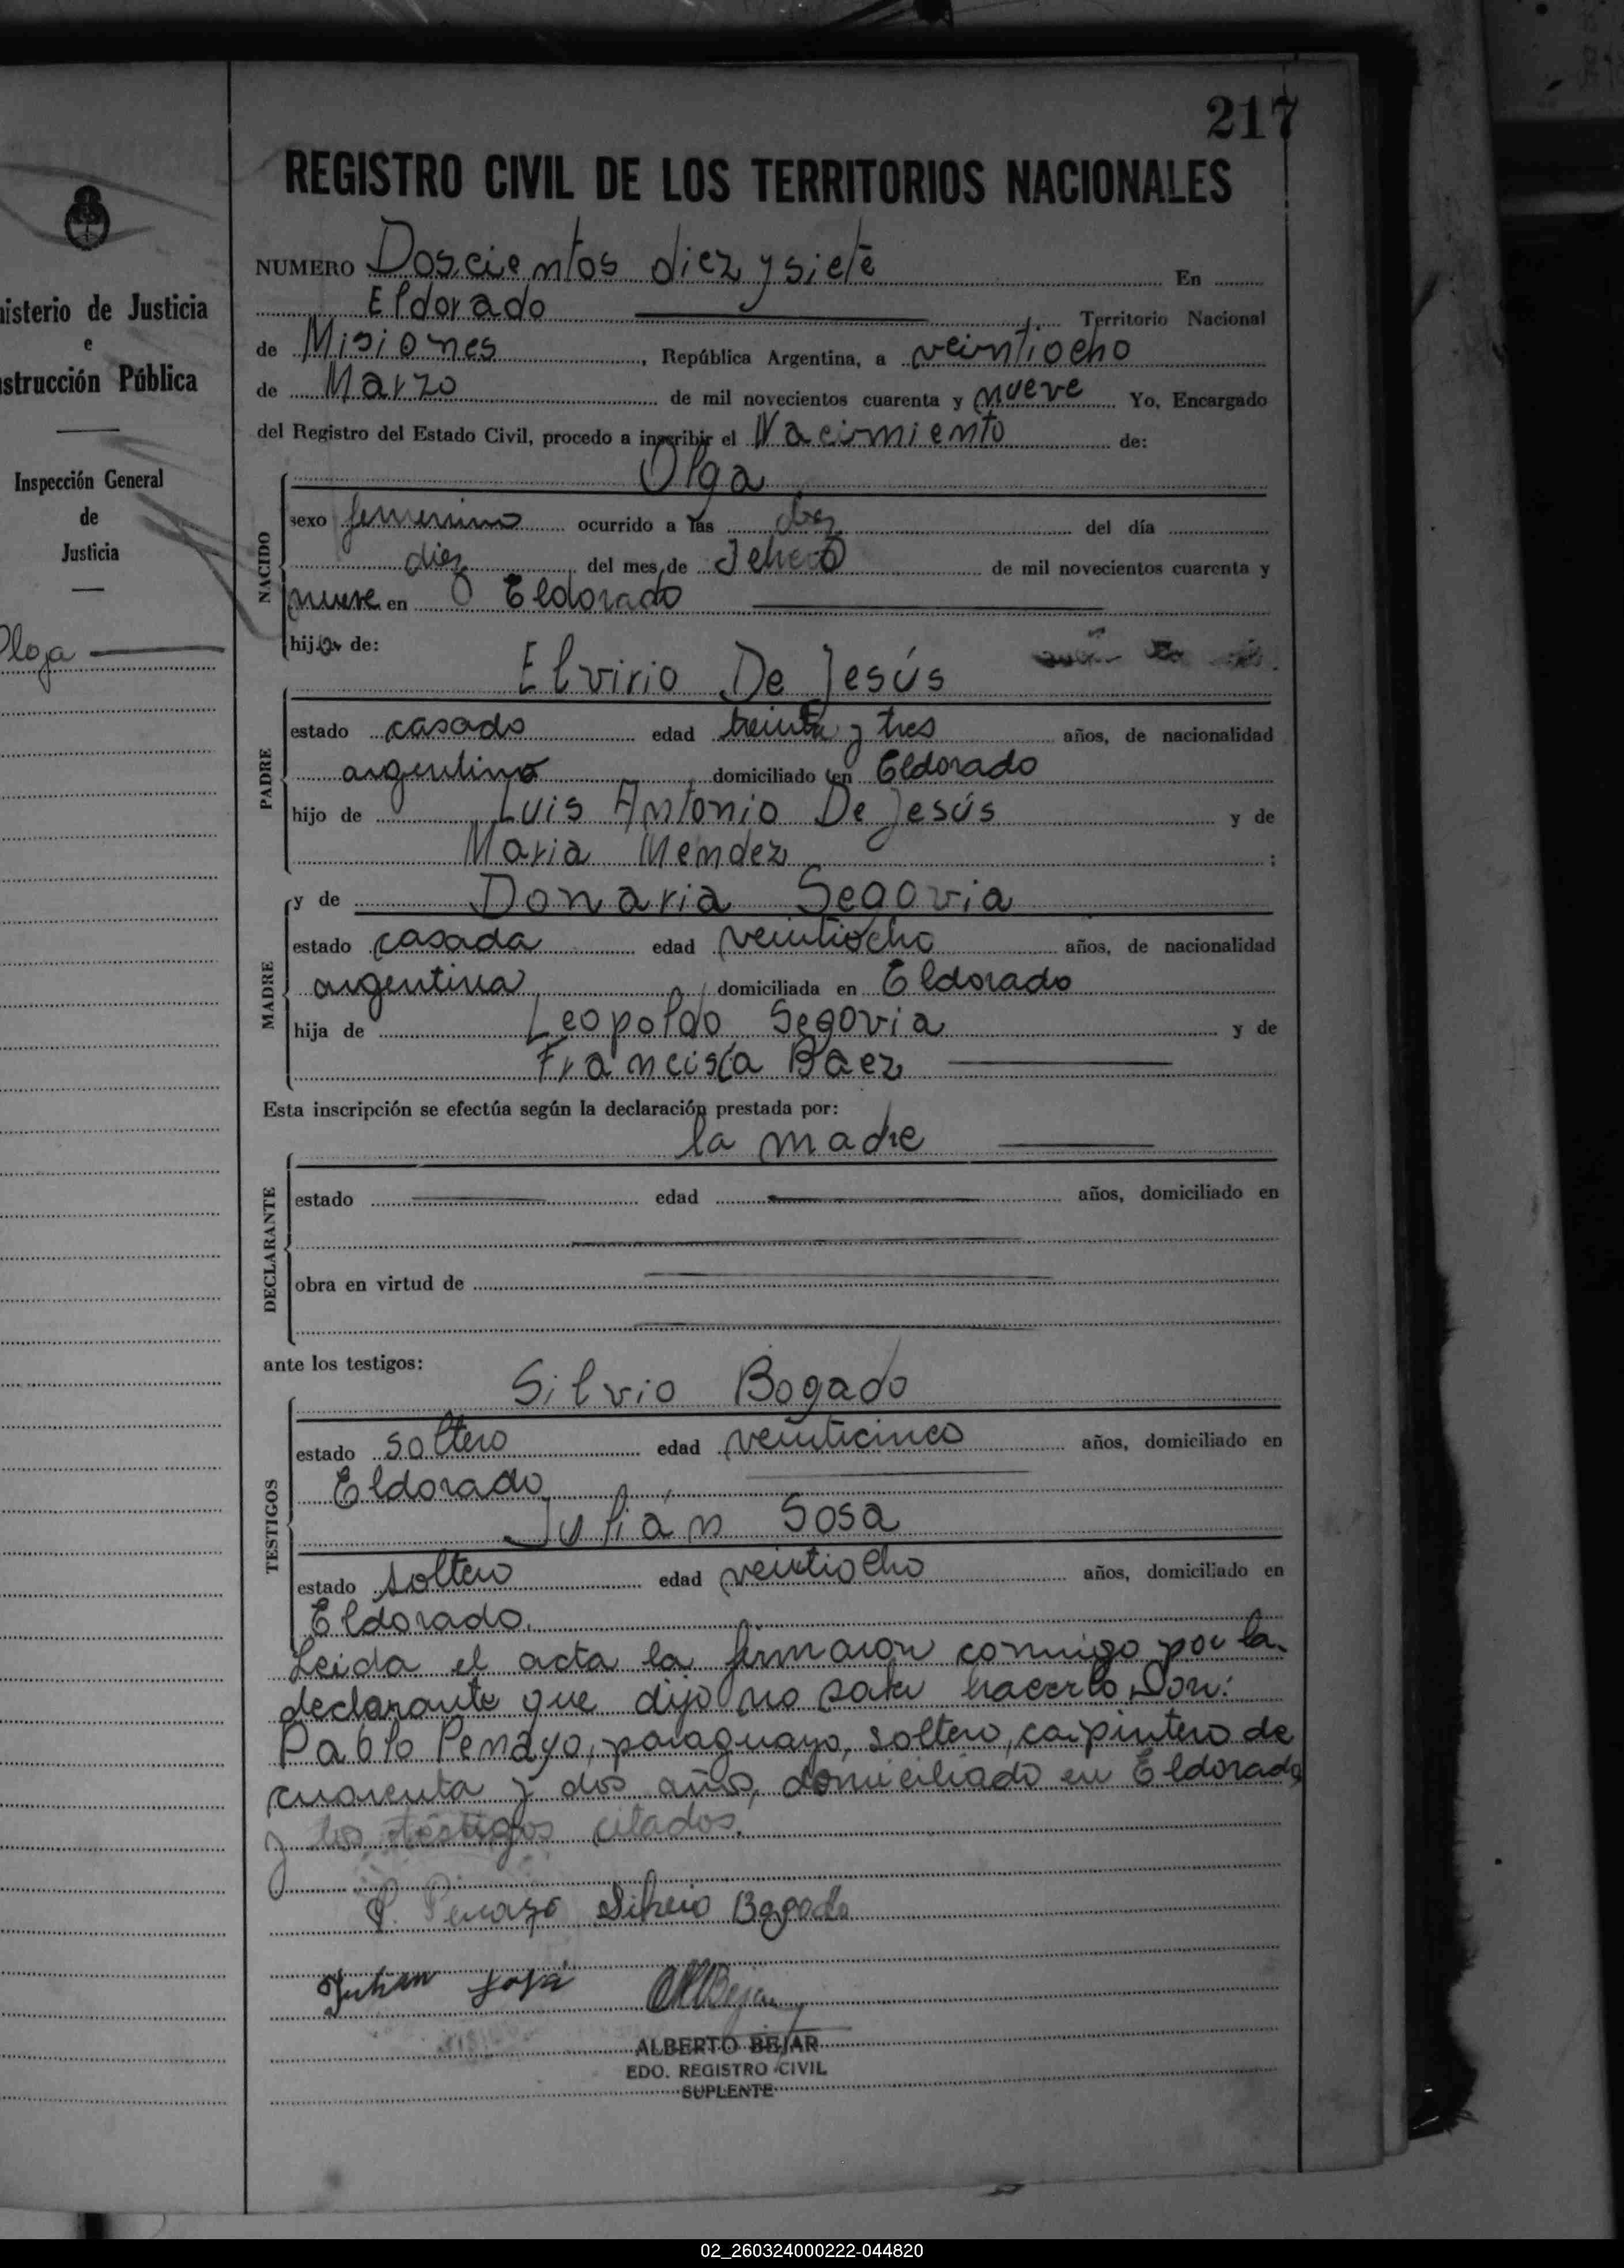 217
REGISTRO CIVIL DE LOS TERRITORIOS NACIONALES
isterio de Justicia
e
strucción Pública
Inspección General
de
Justicia
Olga
NUMERO Doscientos diez y siete En
Eldorado Territorio Nacional
de Misiones, República Argentina, a veintiocho
de Marzo de mil novecientos cuarenta y nueve Yo, Encargado
del Registro del Estado Civil, procedo a inscribir el Nacimiento de:
Olga
NACIDO
sexo femenino ocurrido a las diez del día
diez del mes de de mil novecientos cuarenta y
nueve en Eldorado
hija de:
Elvirio De Jesús
PADRE
estado casado edad treinta y tres años, de nacionalidad
argentino domiciliado en Eldorado
hijo de Luis Antonio De Jesús y de
Maria Mendez ;
MADRE
y de Donaria Segovia
estado casada edad veintiocho años, de nacionalidad
argentina domiciliada en Eldorado
hija de Leopoldo Segovia y de
Francisca Baez
Esta inscripción se efectúa según la declaración prestada por:
la madre
DECLARANTE
estado edad años, domiciliado en
obra en virtud de
ante los testigos:
Silvio Bogado
TESTIGOS
estado soltero edad veinticinco años, domiciliado en
Eldorado
Julián Sosa
estado soltero edad veintiocho años, domiciliado en
Eldorado.
Leida el acta la firmaron conmigo por la
declarante que dijo no saber hacerlo Don:
Pablo Penayo, paraguayo, soltero, carpintero de
cuarenta y dos años, domiciliado en Eldorado
y los testigos citados.
P. Penayo Silvio Bogado
Julian Sosa
ALBERTO BEJAR
EDO. REGISTRO CIVIL
SUPLENTE
02_260324000222-044820